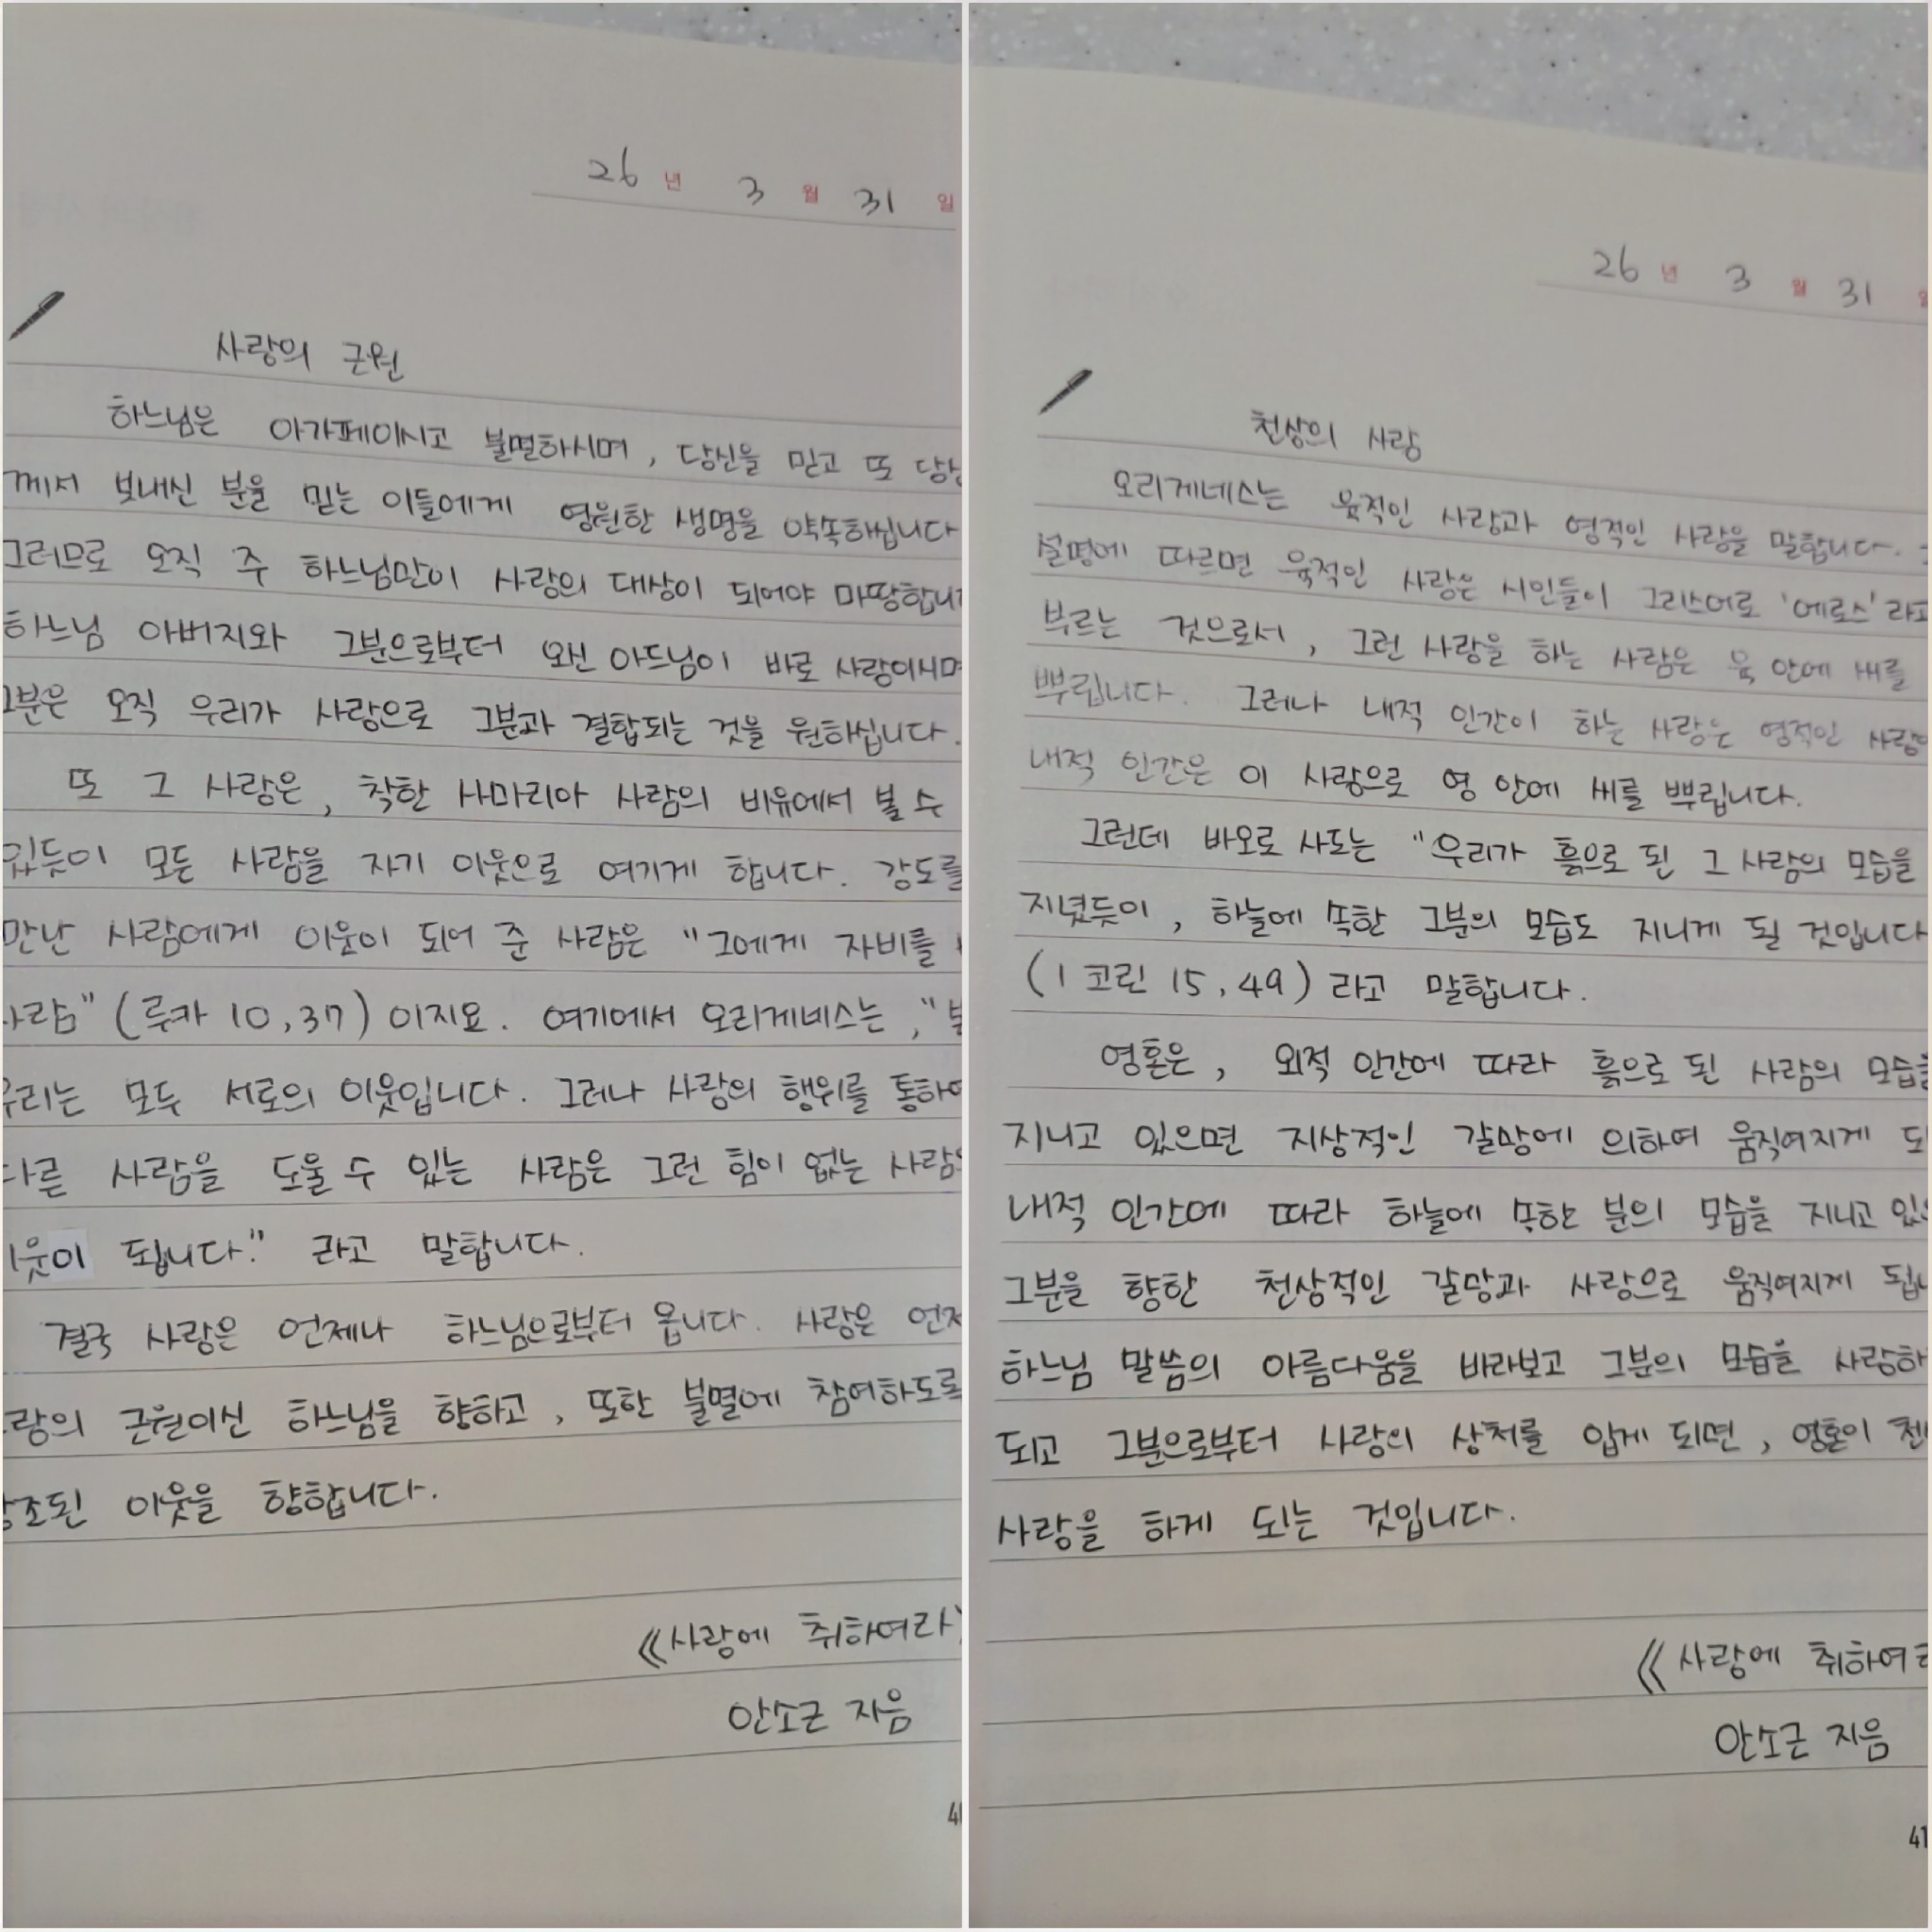 26 년 3 월 31 일
사랑의 근원
하느님은 아가페이시고 불멸하시며, 당신을 믿고 또 당신
께서 보내신 분을 믿는 이들에게 영원한 생명을 약속해십니다
그러므로 오직 주 하느님만이 사랑의 대상이 되어야 마땅합니다
하느님 아버지와 그분으로부터 오신 아드님이 바로 사랑이시며
그분은 오직 우리가 사랑으로 그분과 결합되는 것을 원하십니다.
또 그 사랑은, 착한 사마리아 사람의 비유에서 볼 수
있듯이 모든 사람을 자기 이웃으로 여기게 합니다. 강도를
만난 사람에게 이웃이 되어 준 사람은 "그에게 자비를
사람" (루카 10,37) 이지요. 여기에서 오리게네스는, "
우리는 모두 서로의 이웃입니다. 그러나 사랑의 행위를 통하여
다른 사람을 도울 수 있는 사람은 그런 힘이 없는 사람
이웃이 됩니다." 라고 말합니다.
결국 사랑은 언제나 하느님으로부터 옵니다. 사랑은 언제
사랑의 근원이신 하느님을 향하고, 또한 불멸에 참여하도록
창조된 이웃을 향합니다.
《사랑에 취하여라》
안소근 지음
26 년 3 월 31 일
천상의 사랑
오리게네스는 육적인 사랑과 영적인 사랑을 말합니다.
설명에 따르면 육적인 사랑은 시인들이 그리스어로 '에로스'라고
부르는 것으로서, 그런 사랑을 하는 사람은 육 안에 씨를
뿌립니다. 그러나 내적 인간이 하는 사랑은 영적인 사랑
내적 인간은 이 사랑으로 영 안에 씨를 뿌립니다.
그런데 바오로 사도는 "우리가 흙으로 된 그 사람의 모습을
지녔듯이, 하늘에 속한 그분의 모습도 지니게 될 것입니다
(1 코린 15,49) 라고 말합니다.
영혼은, 외적 인간에 따라 흙으로 된 사람의 모습을
지니고 있으면 지상적인 갈망에 의하여 움직여지게 되
내적 인간에 따라 하늘에 속한 분의 모습을 지니고 있으
그분을 향한 천상적인 갈망과 사랑으로 움직여지게 됩니
하느님 말씀의 아름다움을 바라보고 그분의 모습을 사랑하
되고 그분으로부터 사랑의 상처를 입게 되면, 영혼이 천
사랑을 하게 되는 것입니다.
《사랑에 취하여라
안소근 지음
41